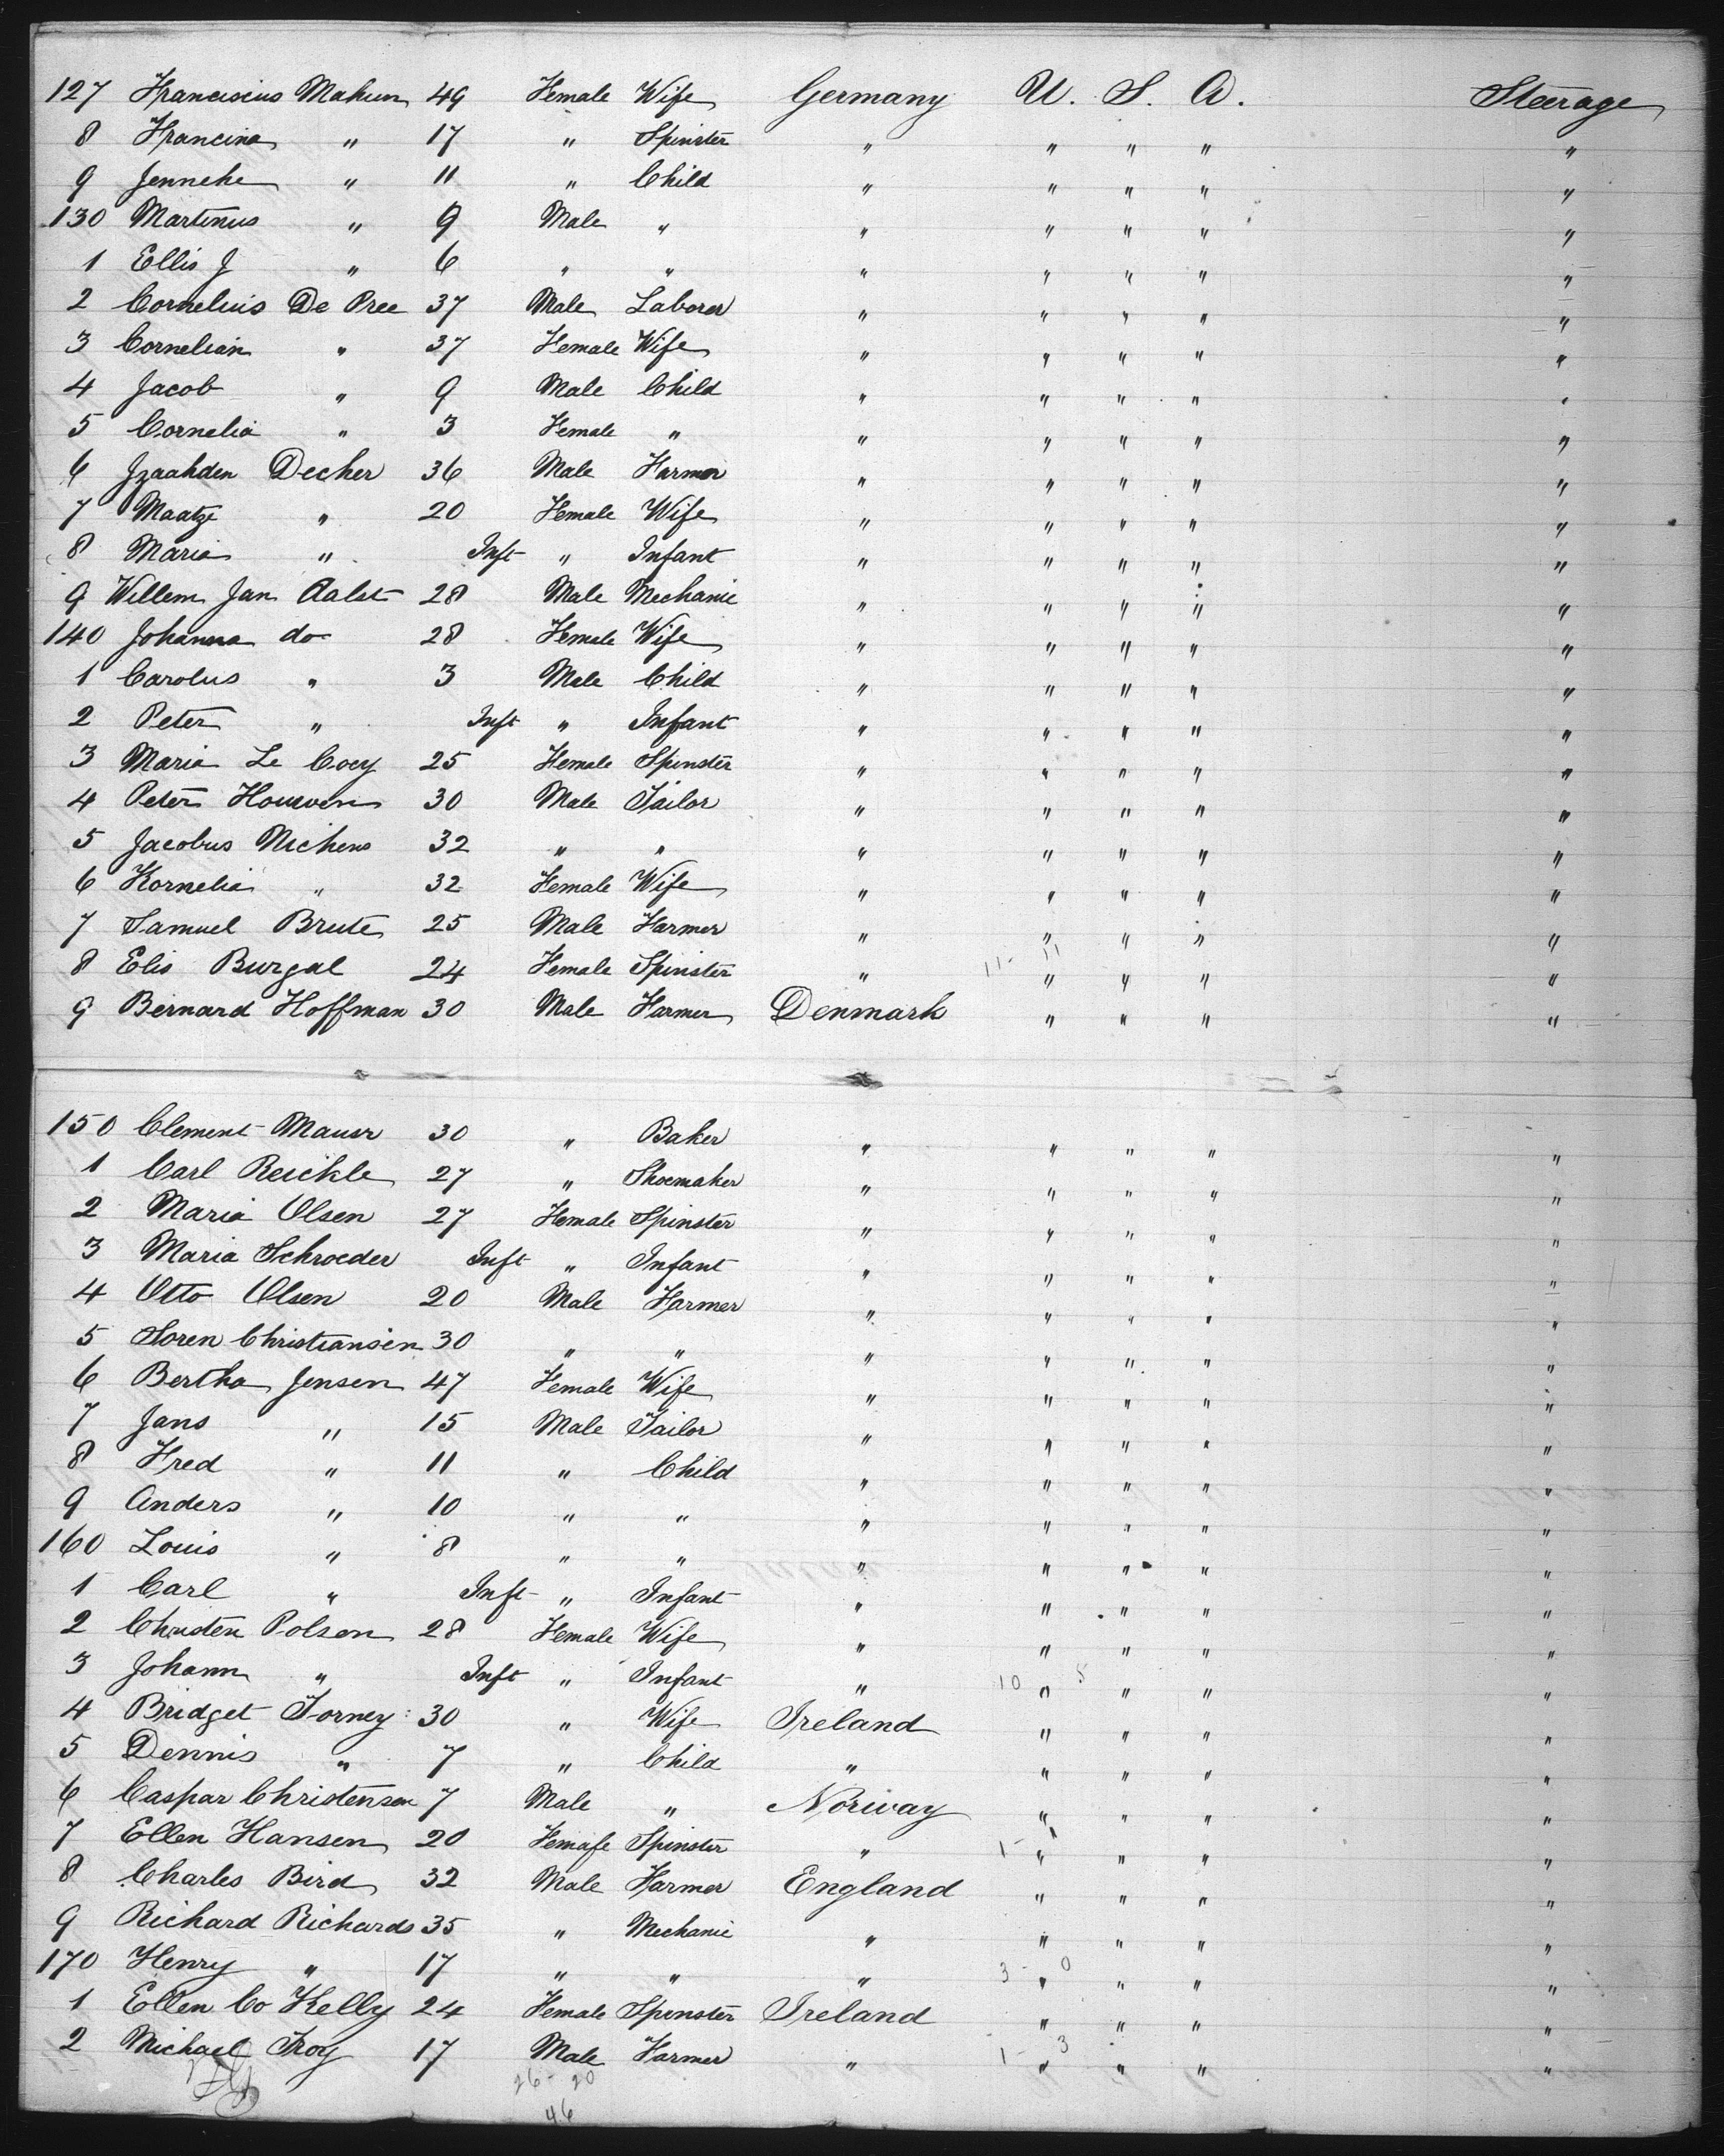 127 Franciscus Mahun 49 Female Wife Germany U. S. A. Steerage
8 Francina " 17 " Spinster " " " " "
9 Jenneke " 11 " Child " " " " "
130 Martinus " 9 Male " " " " " "
1 Ellis J " 6 " " " " " " "
2 Cornelius De Pree 37 Male Laborer " " " " "
3 Cornelian " 37 Female Wife " " " " "
4 Jacob " 9 Male Child " " " " "
5 Cornelia " 3 Female " " " " " "
6 Izaakden Decker 36 Male Farmer " " " " "
7 Maatze " 20 Female Wife " " " " "
8 Maria " Inft " Infant " " " " "
9 Willem Jan Aalst 28 Male Mechanic " " " " "
140 Johanna do 28 Female Wife " " " " "
1 Carolus " 3 Male Child " " " " "
2 Peter " Inft " Infant " " " " "
3 Maria Le Cocy 25 Female Spinster " " " " "
4 Peter Houwen 30 Male Tailor " " " " "
5 Jacobus Michens 32 " " " " " " "
6 Kornelia " 32 Female Wife " " " " "
7 Samuel Brute 25 Male Farmer " " " " "
8 Elis Burgal 24 Female Spinster " 11 - 11 " " " "
9 Bernard Hoffman 30 Male Farmer Denmark " " " "
150 Clement Mauer 30 " Baker " " " " "
1 Carl Reickle 27 " Shoemaker " " " " "
2 Maria Olsen 27 Female Spinster " " " " "
3 Maria Schroeder Inft " Infant " " " " "
4 Otto Olsen 20 Male Farmer " " " " "
5 Soren Christiansen 30 " " " " " " "
6 Bertha Jensen 47 Female Wife " " " " "
7 Jans " 15 Male Tailor " " " " "
8 Fred " 11 " Child " " " " "
9 Anders " 10 " " " " " " "
160 Louis " 8 " " " " " " "
1 Carl " Inft " Infant " " " " "
2 Christen Polsen 28 Female Wife " " " " "
3 Johann " Inft " Infant " 10 " 5 " " "
4 Bridget Torney 30 " Wife Ireland " " " "
5 Dennis " 7 " Child " " " " "
6 Caspar Christensen 7 Male " Norway " " " "
7 Ellen Hansen 20 Female Spinster " 1 - " " " "
8 Charles Bird 32 Male Farmer England " " " "
9 Richard Richards 35 " Mechanic " " " " "
170 Henry " 17 " " " 3 - " 0 " " "
1 Ellen Co Kelly 24 Female Spinster Ireland " " " "
2 Michael Troy 17 Male Farmer " 1 - " 3 " " "
26 - 20
46